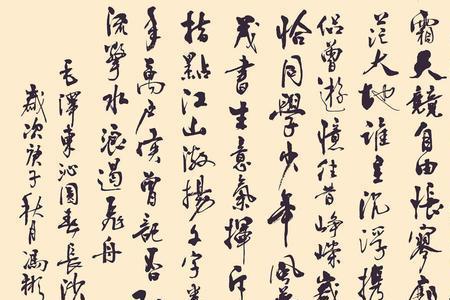 霜天競自由悵寥廓
茫大地誰主沉浮攜
侶曾遊憶往昔崢嶸歲
恰同學少年風
茂書生意氣揮斥
指點江山激揚文字
年萬戶侯曾記否
流擊水浪遏飛舟
毛澤東沁園春長沙
歲次庚子秋月馮彬